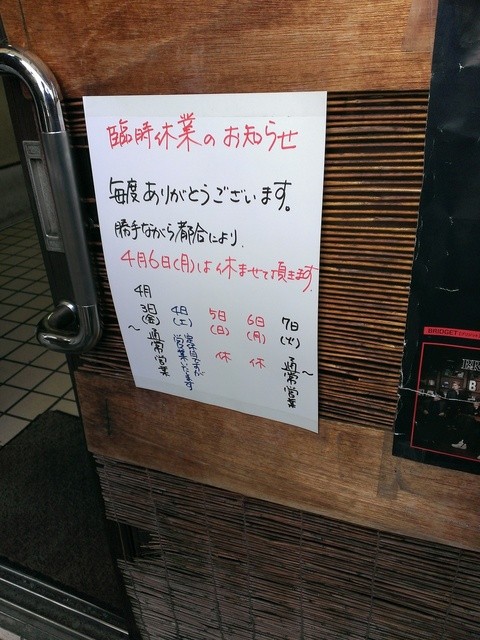 臨時休業のお知らせ
毎度ありがとうございます。
勝手ながら都合により
4月6日(月)は休ませて頂きます
4月
〜3日(金)通常営業
4日(土)
営業いたします
5日(日)休
6日(月)休
7日(火)〜通常営業
BRIDGET